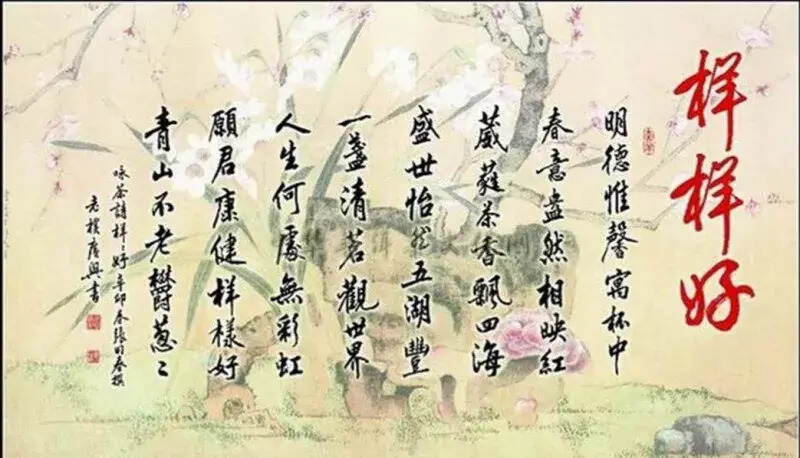 样样好
明德惟馨寓杯中
春意盎然相映紅
葳蕤茶香飄四海
盛世怡然五湖豐
一盞清茗觀世界
人生何處無彩虹
願君康健样樣好
青山不老欝葱〻
咏茶詩样〻好辛卯春張明春撰
老樸 書